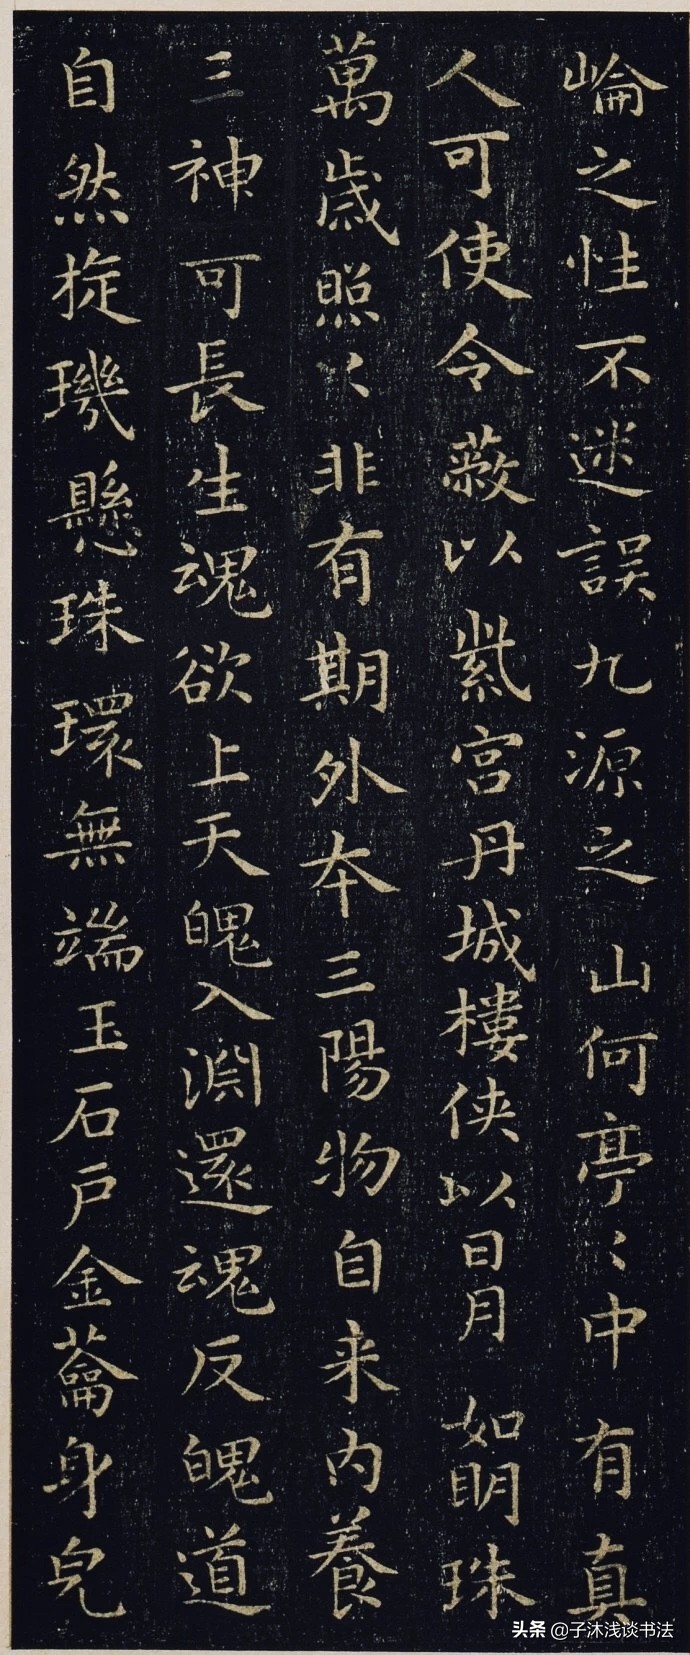 崘之性不迷誤九源之山何亭〻中有真
人可使令蔽以紫宮丹城樓侠以日月如明珠
萬歲照〻非有期外夲三陽物自来内養
三神可長生魂欲上天魄入淵還魂反魄道
自然㨈璣懸珠環無端玉石戶金蘥身皃
头条 @子沐浅谈书法